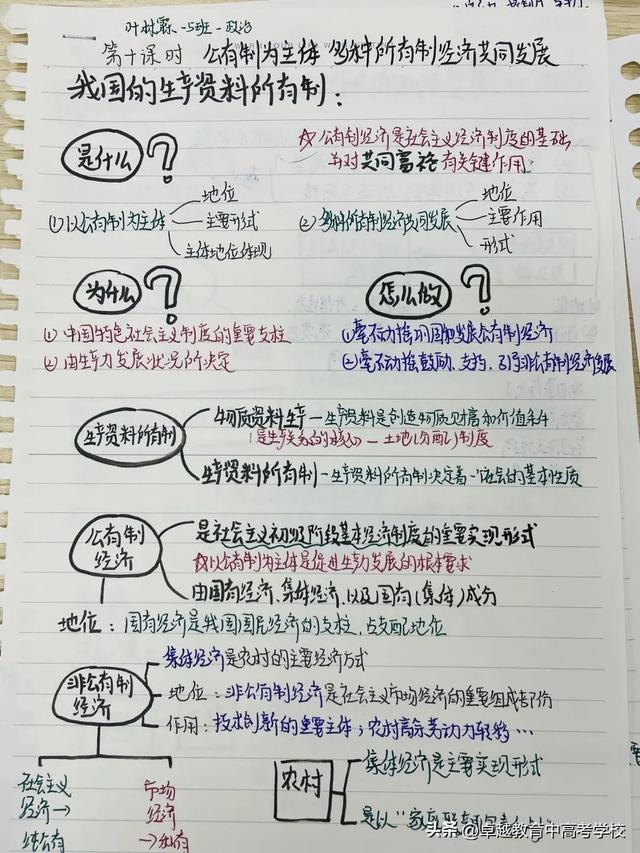 叶树霖-5班-政治
第十课时 公有制为主体 多种所有制经济共同发展
我国的生产资料所有制：
是什么？
☆公有制经济是社会主义经济制度的基础
并对共同富裕有关键作用
①以公有制为主体
地位
主要形式
主体地位体现
②多种所有制经济共同发展
地位
主要作用
形式
为什么？
①中国特色社会主义制度的重要支柱
②由生产力发展状况所决定
怎么做？
①毫不动摇巩固和发展公有制经济
②毫不动摇鼓励、支持、引导非公有制经济发展
生产资料所有制
物质资料生产—生产资料是创造物质财富和价值条件
(是生产关系的核心)—土地(分配)制度
生产资料所有制—生产资料所有制决定着一社会的基本性质
公有制经济
是社会主义初级阶段基本经济制度的重要实现形式
☆以公有制为主体是促进生产力发展的根本要求
由国有经济、集体经济,以及国有(集体)成分
地位：国有经济是我国国民经济的支柱,占支配地位
非公有制经济
集体经济是农村的主要经济方式
地位：非公有制经济是社会主义市场经济的重要组成部份
作用：技术创新的重要主体；农村高余劳动力转移…
社会主义
经济→
纯公有
市场
经济
→私有
农村
集体经济是主要实现形式
是以"家庭联
头条@卓越教育中高考学校